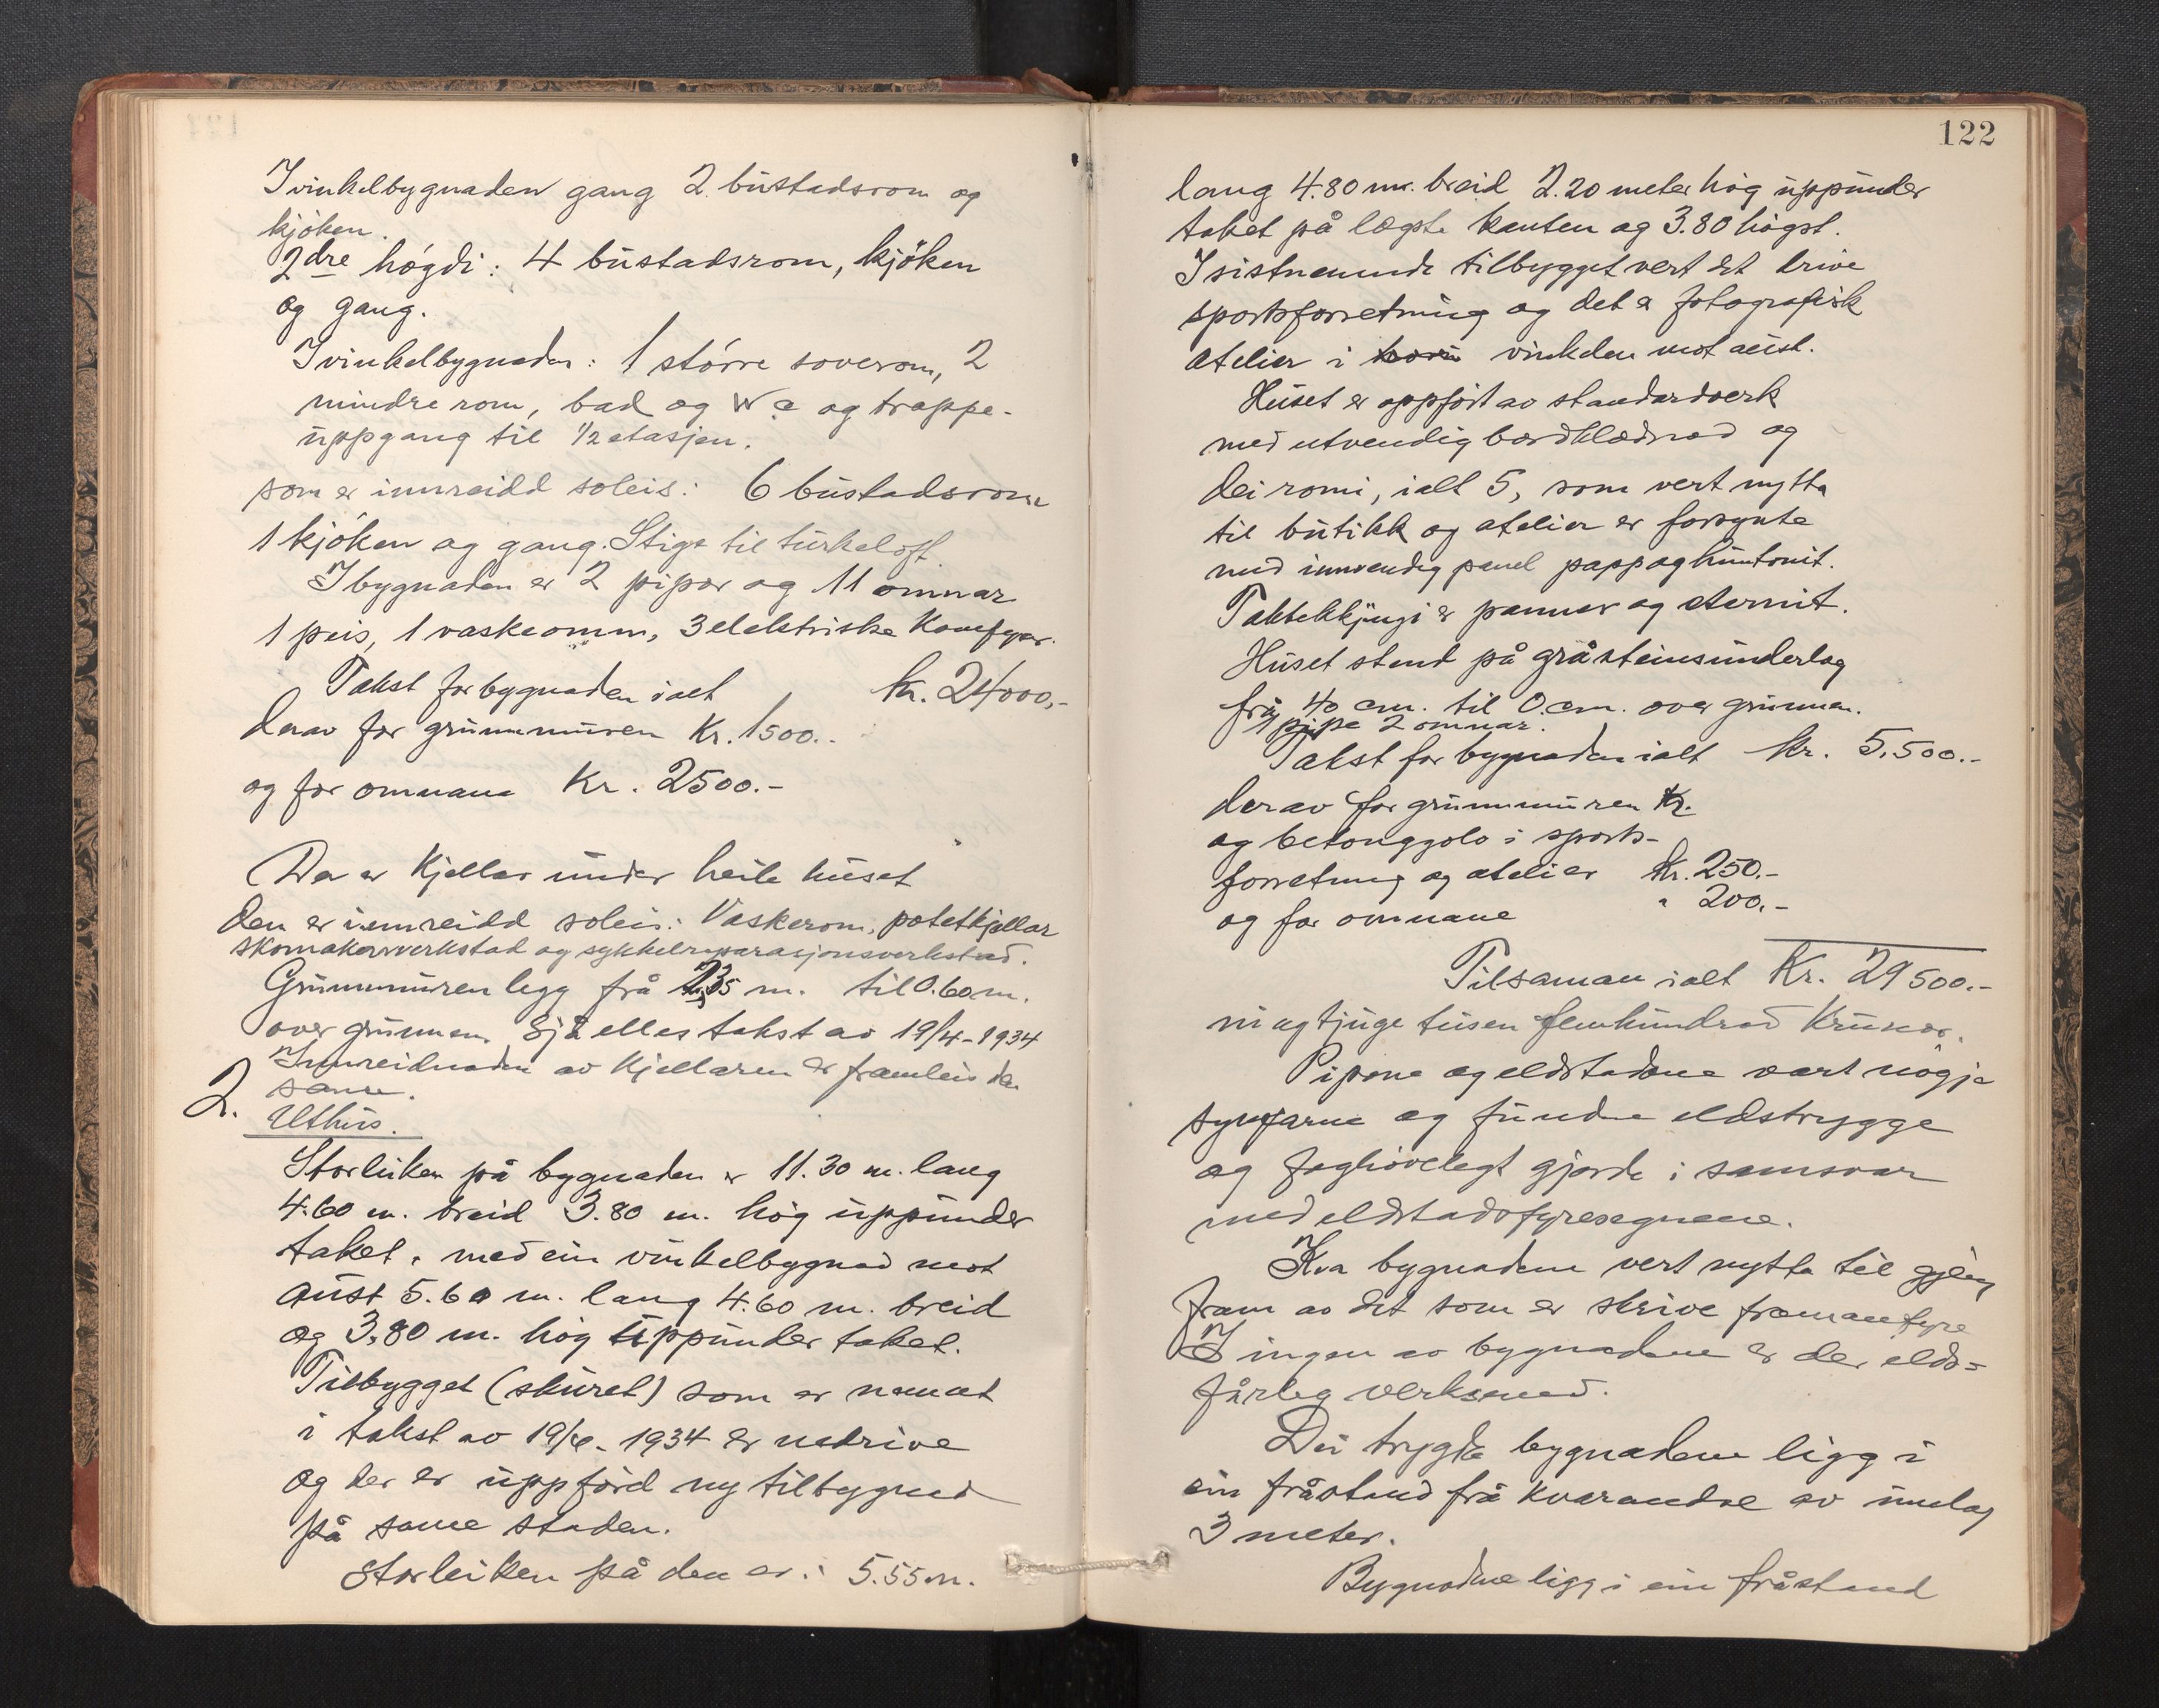 I vinkelbygnaden gang 2 bustadsrom og
kjöken.
2dre högdi: 4 bustadsrom, kjöken
og gang.
I vinkelbygnaden: 1 större soverom, 2
mindre rom, bad og W.c og trappe-
uppgang til 1/2 etasjen.
som er innreidd soleis: 6 bustadsrom
1 kjöken og gang. Stige til turkeloft
I bygnaden er 2 pipor og 11 omnar
1 peis, 1 vaskeomn, 3 elektriske Komfyrar.
Takst for bygnaden ialt kr. 24000,-
derav for grunnmuren Kr. 1500.-
og for omnane Kr. 2500.-
Der er Kjellar under heile huset
den er innreidd soleis: Vaskerom, potetkjellar
skomakarverkstad og sykkelreparasjonsverkstad.
Grunnmuren ligg frå 2.35 m. til 0.60 m.
over grunnen. Sjå elles takst av 19/4-1934
Innreidnaden av Kjellaren er framleis den
same.
2.
Uthus.
Storleiken på bygnaden er 11.30 m. lang
4.60 m. breid 3.80 m. høg uppunder
taket, med ein vinkelbygnad mot
aust 5.60 m. lang 4.60 m. breid
og 3.80 m. høg uppunder taket.
Tilbygget (skuret) som er nemnt
i takst av 19/4-1934 er nedrive
og der er uppförd ny tilbygnad
på same staden.
Storleiken på den er: 5.55 m.
122
lang 4.80 m. breid 2.20 meter høg uppunder
taket på lægste kanten og 3.80 høgst.
I sistnemnde tilbygget vert det drive
sportsforretning og det er fotografisk
atelier i vinkelen mot aust.
Huset er oppført av standardverk
med utvendig bordklædnad og
dei romi, ialt 5, som vert nytta
til butikk og atelier er forsynte
med innvendig panel papp og huntonit.
Taktekkjingi er pannor og eternit.
Huset stend på gråsteinsunderlag
frå 40 cm. til 0 cm. over grunnen.
1 pipe 2 omnar.
Takst for bygnaden ialt kr. 5.500.-
derav for grunnmuren Kr.
og betonggolv i sports-
forretning og atelier kr. 250.-
og for omnane " 200.-
Tilsaman ialt Kr. 29500.-
ni og tjuge tusen femhundrad Krunor.
Pipone og eldstadene vart nögje
synfarne og fundne eldstrygge
og faghövelegt gjorde i samsvar
med eldstadsfyresegnene.
Kva bygnadene vert nytta til gjeng
fram av det som er skrive framanfyre
I ingen av bygnadene er der elds-
fårleg verksemd.
Dei trygda bygnadene ligg i
ein fråstand frå kvarandre av umlag
3 meter.
Bygnadene ligg i ein fråstand